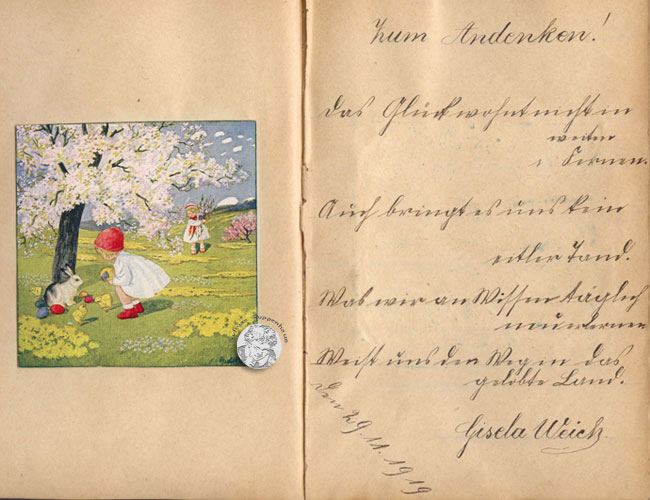 Zum Andenken!
Das Glück wohnt nicht in
weiten
Fernen.
Auch bringt es uns kein
eitler Tand.
Was wir an Wissen täglich
neu lernen
Weist uns den Weg in das
gelobte Land.
Gisela Weich
Den 29.11.1919